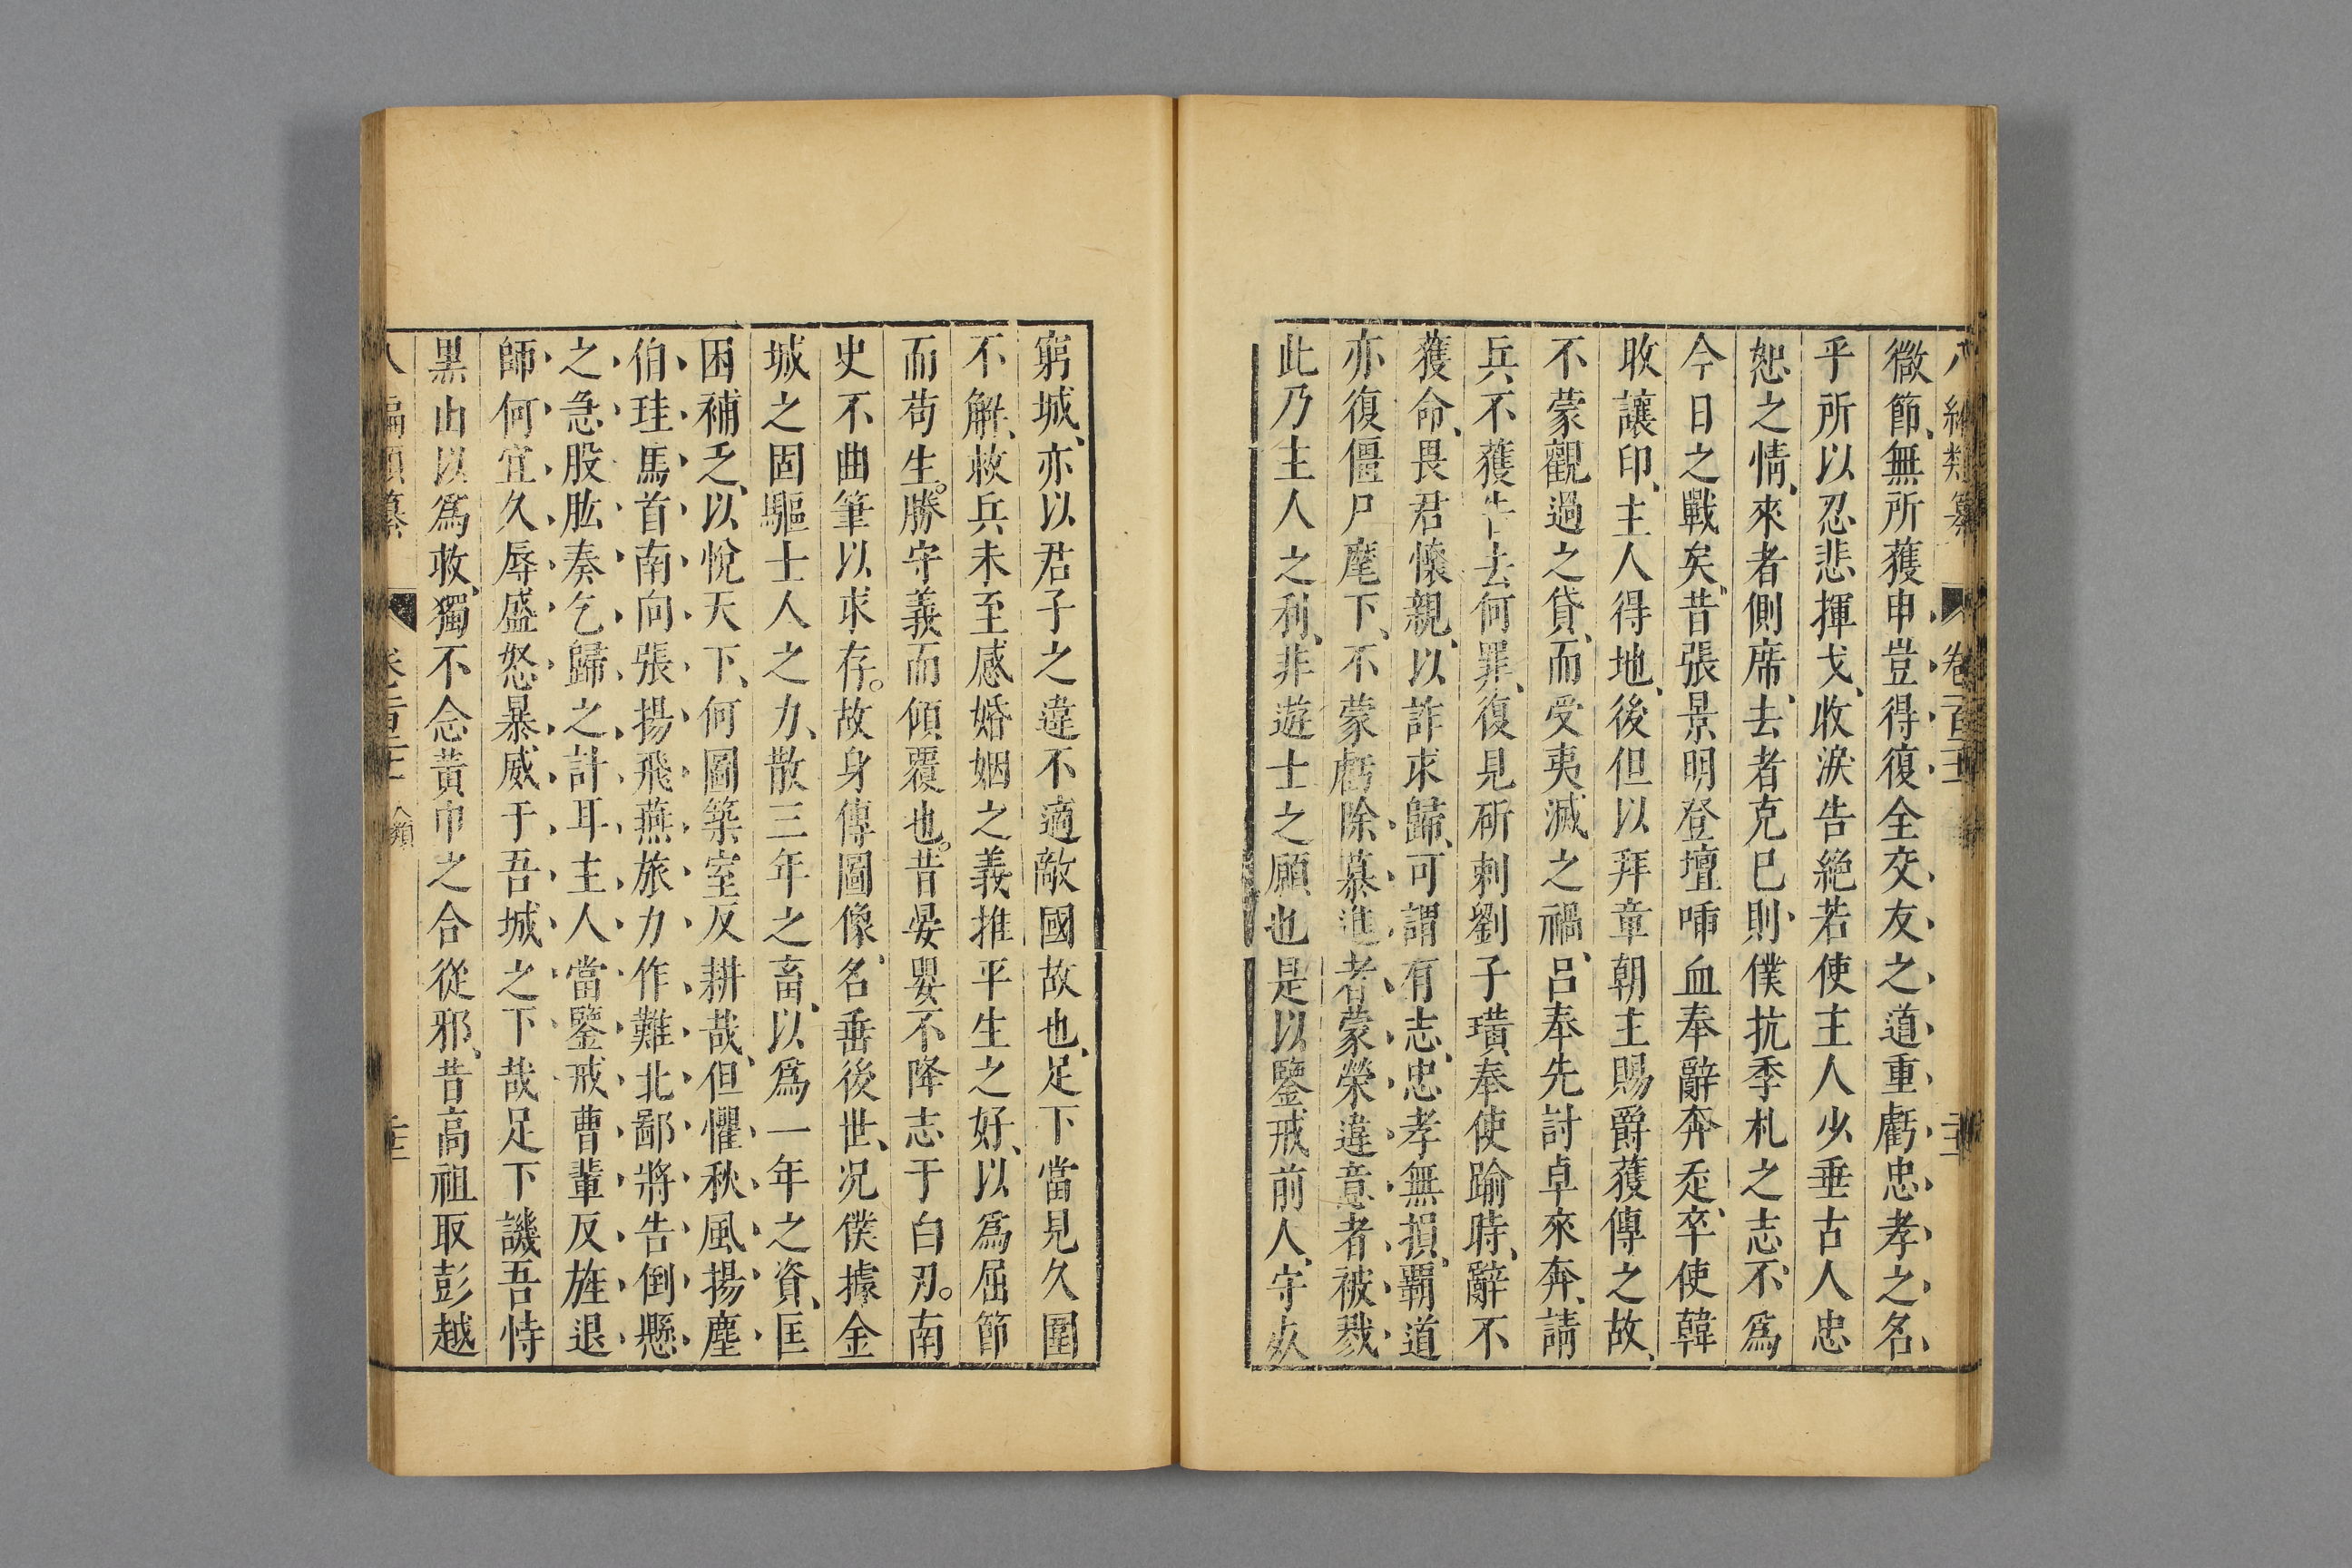 徼節無所獲申豈得復全交友之道重虧忠孝之名
乎所以忍悲揮戈收淚告絶若使主人少垂古人忠
恕之情來者側席去者克巳則僕抗季札之志不爲
今日之戰矣昔張景明登壇唾血奉辭奔走卒使韓
收讓印主人得地後但以拜章朝主賜爵獲傳之故
不蒙觀過之貸而受夷滅之禍呂奉先討卓來奔請
兵不獲告去何罪復見斫刺劉子璜奉使踰時辭不
獲命畏君懷親以詐求歸可謂有志忠孝無損覇道
亦復僵尸麾下不蒙虧除慕進者蒙榮違意者被戮
此乃主人之利非遊士之願也是以鑒戒前人守夊
窮城亦以君子之違不適敵國故也足下當見久圍
不解救兵未至感婚姻之義推平生之好以爲屈節
而苟生勝守義而傾覆也昔晏嬰不降志于白刃南
史不曲筆以求存故身傳圖像名垂後世况僕據金
城之固驅士人之力散三年之畜以爲一年之資匡
困補乏以悅天下何圖築室反耕哉但懼秋風揚塵
伯珪馬首南向張揚飛燕旅力作難北鄙將告倒懸
之急股肱奏乞歸之計耳主人當鑒戒曹輩反旌退
師何宜久辱盛怒暴威于吾城之下哉足下譏吾恃
黒山以爲救獨不念黃巾之合從邪昔高祖取彭越